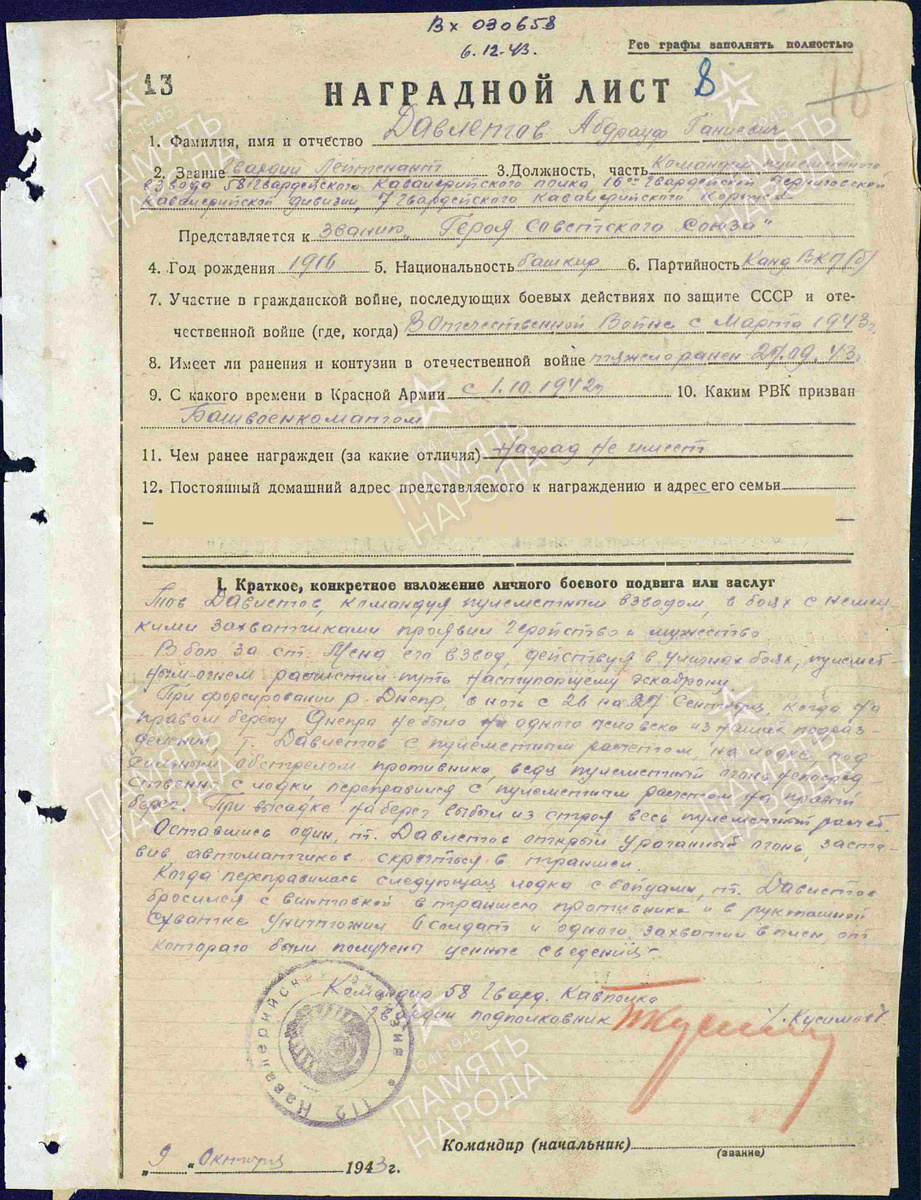 Вх 030658
6.12.43.
Все графы заполнять полностью
13
НАГРАДНОЙ ЛИСТ 8
18
1. Фамилия, имя и отчество Давлетов Абдрауф Ганиевич
2. Звание Гвардии Лейтенант 3. Должность, часть Командир пулеметного
взвода 58 Гвардейского Кавалерийского полка 16ой Гвардейской Черниговской
Кавалерийской дивизии, 7 Гвардейского Кавалерийского Корпуса
Представляется к званию „Героя Советского Союза"
4. Год рождения 1916 5. Национальность башкир 6. Партийность Канд ВКП(б)
7. Участие в гражданской войне, последующих боевых действиях по защите СССР и оте-
чественной войне (где, когда) В Отечественной Войне с Марта 1943г.
8. Имеет ли ранения и контузии в отечественной войне тяжело ранен 27.09.43г
9. С какого времени в Красной Армии с 1.10.1942г. 10. Каким РВК призван
Башвоенкоматом
11. Чем ранее награжден (за какие отличия) Наград не имеет
12. Постоянный домашний адрес представляемого к награждению и адрес его семьи
I. Краткое, конкретное изложение личного боевого подвига или заслуг
Тов Давлетов, командуя пулеметным взводом, в боях с немец-
кими захватчиками проявил Геройство и мужество
В бою за ст. Мена его взвод, действуя в уличных боях, пулемет-
ным огнем расчистил путь наступающему эскадрону.
При форсировании р. Днепр, в ночь с 26 на 27 Сентября, когда на
правом берегу Днепра не было ни одного человека из наших подраз-
делений, т. Давлетов с пулеметным расчетом, на лодке, под
сильным обстрелом противника, ведя пулеметный огонь непосред-
ственно с лодки переправился с пулеметным расчетом на правый
берег. При высадке на берег выбыл из строя весь пулеметный расчет.
Оставшись один, т. Давлетов открыл ураганный огонь, заста-
вив автоматчиков скрыться в траншеи.
Когда переправилась следующая лодка с бойцами, т. Давлетов
бросился с винтовкой в траншею противника и в рукопашной
схватке уничтожил 6 солдат и одного захватил в плен, от
которого были получены ценные сведения.
Командир 58 Гвард. Кавполка
Гвардии подполковник Ткусим /. Кусимов/
112 Кавалерийская дивизия
Командир (начальник)
(звание)
„9" Октября 1943г.
ПАМЯТЬ НАРОДА
1941-1945